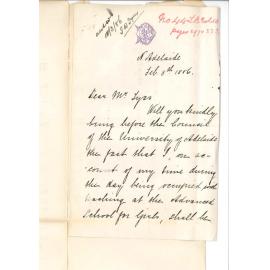 N Adelaide
Feb. 8th 1886.
Dear Mr Tyas
Will you kindly
bring before the Council
of the University of Adelaide
the fact that I, on ac-
count of my time during
the day being occupied in
teaching at the Advanced
School for Girls, shall be